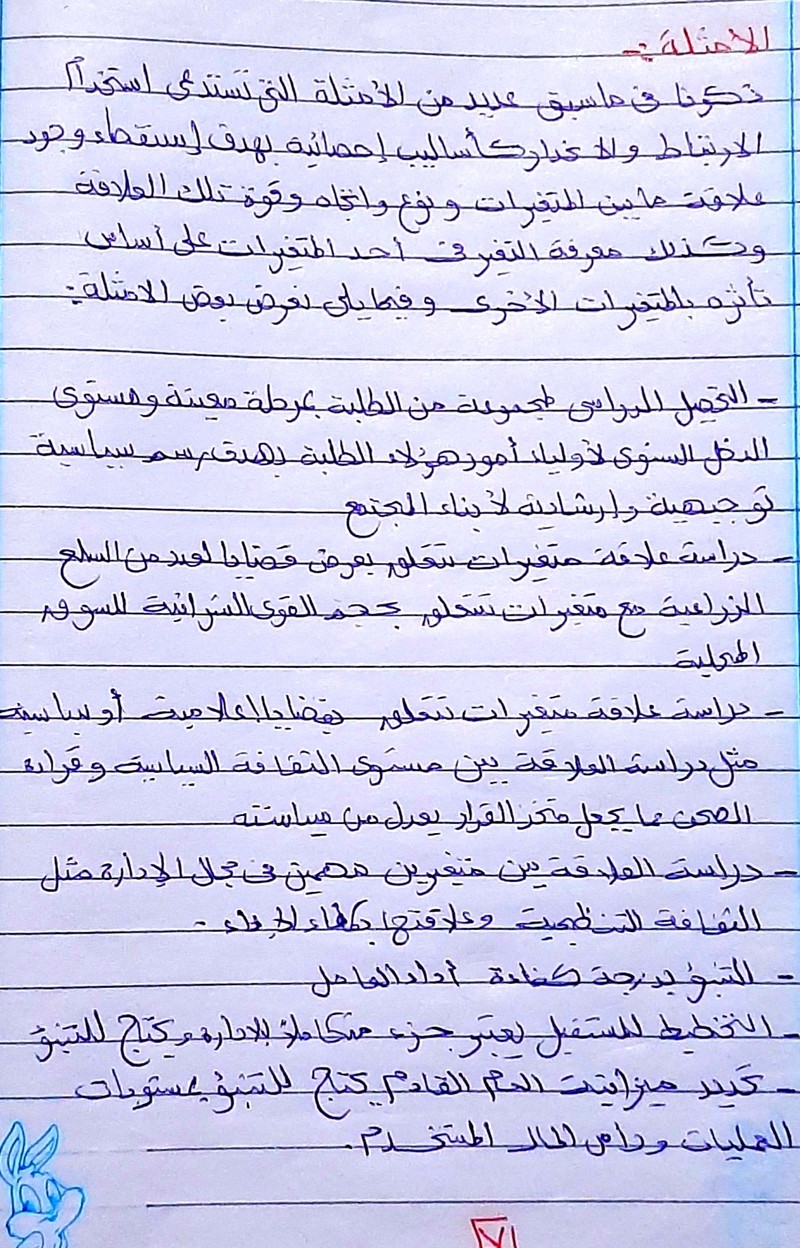 الأمثلة :-
ذكرنا فى ماسبق عديد من الأمثلة التى تستدعى استخدام
الارتباط والانحدار كأساليب إحصائية بهدف إستقطاء وجود
علاقة مابين المتغيرات ونوع واتجاه وقوة تلك العلاقة
وكذلك معرفة التغير فى أحد المتغيرات على أساس
تأثره بالمتغيرات الأخرى وفيما يلى نعرض بعض الامثلة :
- التحصل الدراسى لمجموعة من الطلبة بمرحلة معينة ومستوى
الدخل السنوى لأولياء أمور هؤلاء الطلبة بهدف رسم سياسية
توجيهية وإرشادية لأبناء المجتمع
- دراسة علاقة متغيرات تتعلق بعرض قضايا لعدد من السلع
الزراعية مع متغيرات تتعلق بحجم القوى الشرائية للسوق
المحلية
- دراسة علاقة متغيرات تتعلق بقضايا إعلامية أو سياسية
مثل دراسة العلاقة بين مستوى الثقافة السياسية وقراءة
الصحف مما يجعل متخذ القرار يعدل من سياسته
- دراسة العلاقة بين متغيرين مهمين فى مجال الإدارة مثل
الثقافة التنظيمية وعلاقتها بكفاءة الاداء .
- التنبؤ بدرجة كفاءة أداء العامل
- التخطيط للمستقبل يعتبر جزء متكاملاً بالادارة ويحتاج للتنبؤ
- تحديد ميزانيت العام القادم يحتاج للتنبؤ بمستويات
العمليات وراس المال المستخدم .
٧١